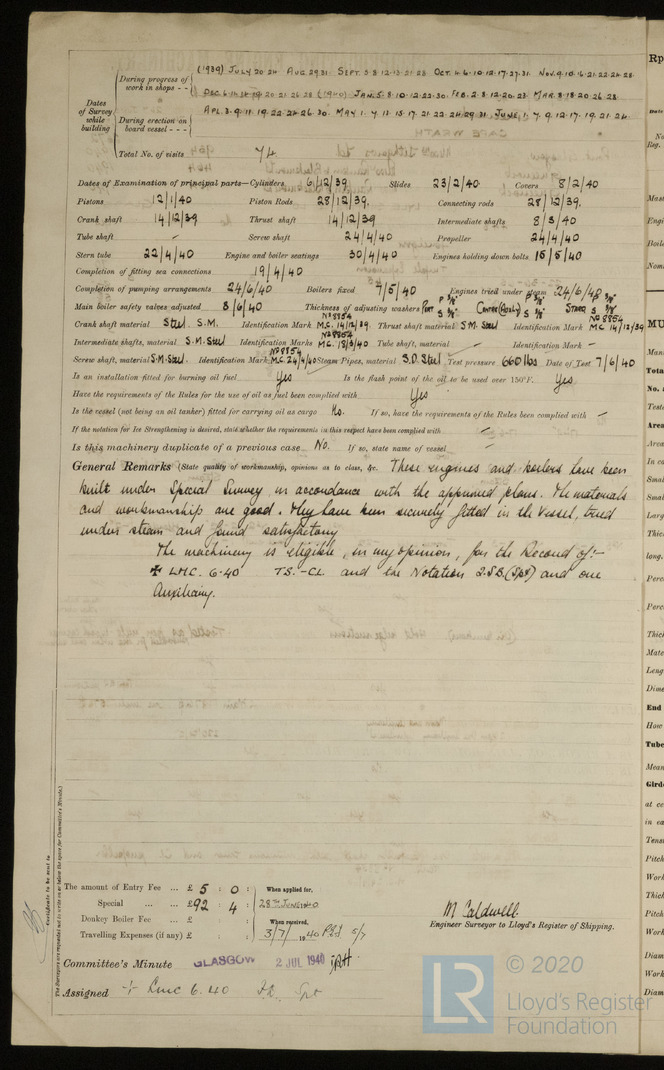 (1939) JULY 20·24 AUG 29·31 SEPT. 5·8·12·13·21·28 OCT. 4·6·10·12·17·27·31 NOV. 9·10·16·21·22·24·28
During progress of work in shops - -
DEC. 6·12·14·19·20·21·26·28 (1940) JAN. 5·8·10·12·22·30 FEB. 2·8·12·20·23 MAR. 8·18·20·26·28
Dates of Survey while building
During erection on board vessel - - -
APL. 3·9·11·19·22·24·26·30 MAY 1·7·13·15·17·21·22·24·29·31 JUNE 1·7·9·12·17·19·21·24
Total No. of visits 74
Dates of Examination of principal parts—Cylinders 6/12/39 Slides 23/2/40 Covers 8/2/40
Pistons 12/1/40 Piston Rods 28/12/39. Connecting rods 28/12/39.
Crank shaft 14/12/39 Thrust shaft 14/12/39 Intermediate shafts 8/3/40
Tube shaft - Screw shaft 24/4/40 Propeller 24/4/40
Stern tube 22/4/40 Engine and boiler seatings 30/4/40 Engines holding down bolts 15/5/40
Completion of fitting sea connections 19/4/40
Completion of pumping arrangements 24/6/40 Boilers fixed 7/5/40 Engines tried under steam 24/6/40
Main boiler safety valves adjusted 8/6/40 Thickness of adjusting washers PORT P 3/8" S 3/8" CENTRE P 3/8" S 3/8" STARBD P 3/8" S 3/8"
Crank shaft material Steel S.M. Identification Mark No 8854 M.C. 14/12/39 Thrust shaft material S.M. Steel Identification Mark No 8854 MC 14/12/39
Intermediate shafts, material S.M. Steel Identification Marks No 8854 M.C. 18/3/40 Tube shaft, material - Identification Mark -
Screw shaft, material S.M. Steel Identification Mark No 8854 M.C. 24/4/40 Steam Pipes, material S.D. Steel Test pressure 660 lbs Date of Test 7/6/40
Is an installation fitted for burning oil fuel Yes Is the flash point of the oil to be used over 150°F. Yes
Have the requirements of the Rules for the use of oil as fuel been complied with Yes
Is the vessel (not being an oil tanker) fitted for carrying oil as cargo No. If so, have the requirements of the Rules been complied with -
If the notation for Ice Strengthening is desired, state whether the requirements in this respect have been complied with -
Is this machinery duplicate of a previous case No. If so, state name of vessel -
General Remarks (State quality of workmanship, opinions as to class, &c. These engines and boilers have been
built under Special Survey in accordance with the approved plans. The materials
and workmanship are good. They have been securely fitted in the Vessel, tried
under steam and found satisfactory
The machinery is eligible, in my opinion, for the Record of:-
✠ LMC. 6·40 T.S.-CL and the Notation 2.S.B. (Spt) and one
Auxiliary.
Certificate to be sent to
The Surveyors are requested not to write on or below the space for Committee's Minute.)
The amount of Entry Fee ... £ 5 : 0 : When applied for,
Special ... ... £ 92 : 4 : 28TH JUNE 1940
Donkey Boiler Fee ... £ : : When received,
Travelling Expenses (if any) £ : : 3/7/1940 5/7
M Caldwell
Engineer Surveyor to Lloyd's Register of Shipping.
Committee's Minute GLASGOW 2 JUL 1940
Assigned + Lmc 6.40
© 2020
LR Lloyd's Register
Foundation